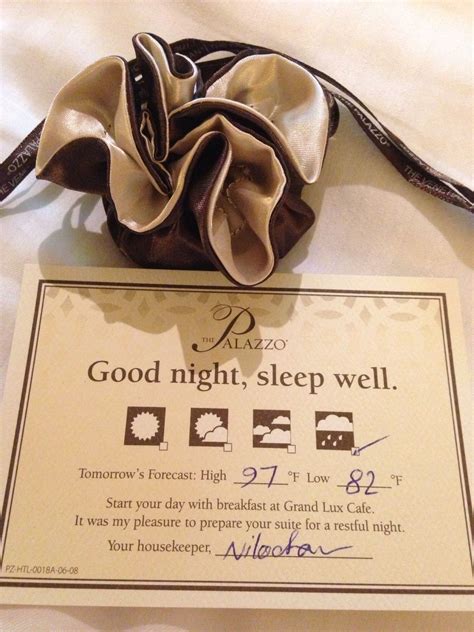 THE PALAZZO
THE PALAZZO
THE PALAZZO
Good night, sleep well.
Tomorrow's Forecast: High 97 °F Low 82 °F
Start your day with breakfast at Grand Lux Cafe.
It was my pleasure to prepare your suite for a restful night.
Your housekeeper,
PZ-HTL-0018A-06-08